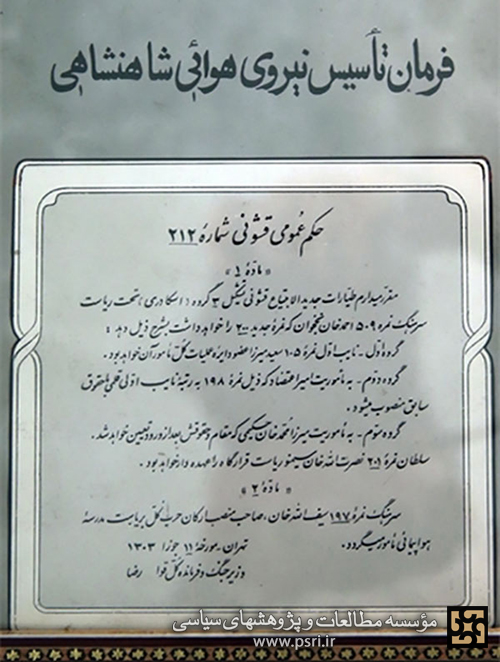 فرمان تأسیس نیروی هوائی شاهنشاهی
حکم عمومی قشونی شمارهٔ ۲۱۲
« مادّهٔ ۱ »
مقرر میدارم طیارات جدید الابتیاع قشونی تشکیل ۳ گروه (اسکادری) تحت ریاست
سرهنگ نمره ۵۰۹ احمدخان نخجوان که نمرهٔ جدید ۲۰۰ را خواهد داشت بشرح ذیل دهد :
گروه اوّل - نایب اوّل نمرهٔ ۱۰۵ سعید میرزا عضو دایره عملیات کل مأمور آن خواهد بود .
گروه دوّم - به مأموریت امیر اعتضاد که ذیل نمرهٔ ۱۹۸ به رتبهٔ نایب اوّلی قلمی با حقوق
سابق منصوب میشود .
گروه سوّم - به مأموریت میرزا محمّد خان حکیمی که مقام و حقوقش بعد از ورود تعیین خواهد شد .
سلطان نمرهٔ ۲۰۱ نصرت الله خان سیمینو ریاست قرارگاه را عهده دار خواهد بود .
« مادّهٔ ۲ »
سرهنگ نمرهٔ ۱۹۷ سیف الله خان ، صاحب منصب ارکان حرب کل بریاست مدرسهٔ
هواپیمائی مأمور میگردد . تهران - مورخهٔ ۱۱ جوزا ۱۳۰۳
وزیر جنگ و فرمانده کل قوا رضا
مؤسسه مطالعات و پژوهشهای سیاسی
www.psri.ir